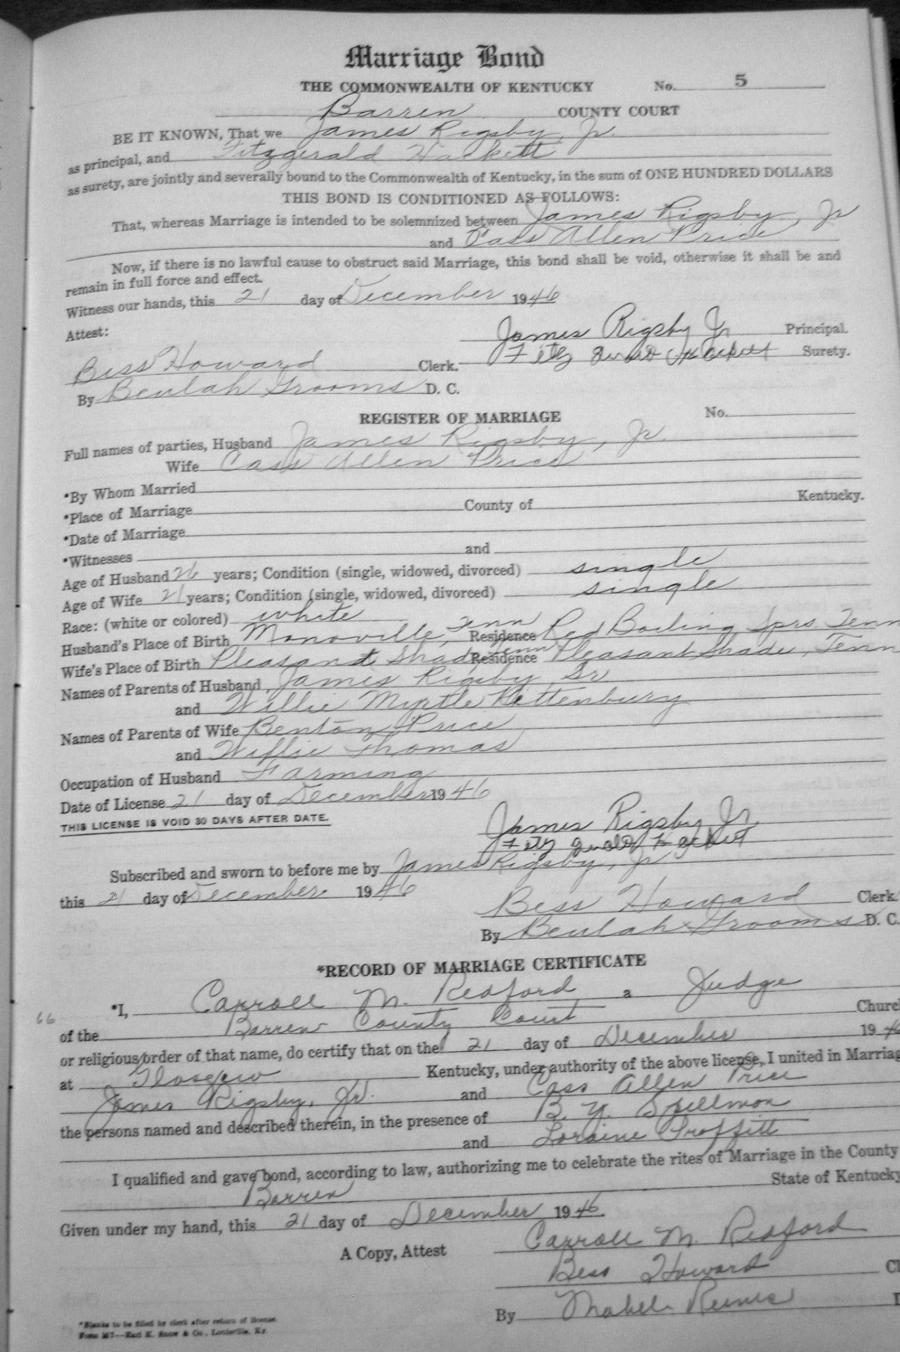 Marriage Bond
THE COMMONWEALTH OF KENTUCKY No. 5
Barren COUNTY COURT
BE IT KNOWN, That we James Rigsby, Jr.
as principal, and Fitzgerald Hackett
as surety, are jointly and severally bound to the Commonwealth of Kentucky, in the sum of ONE HUNDRED DOLLARS
THIS BOND IS CONDITIONED AS FOLLOWS:
That, whereas Marriage is intended to be solemnized between James Rigsby, Jr
and Cass Allen Price
Now, if there is no lawful cause to obstruct said Marriage, this bond shall be void, otherwise it shall be and
remain in full force and effect.
Witness our hands, this 21 day of December 1946
Attest:
James Rigsby Jr Principal.
Bess Howard Clerk. Fitzgerald Hackett Surety.
By Beulah Grooms D. C.
REGISTER OF MARRIAGE No.
Full names of parties, Husband James Rigsby, Jr.
Wife Cass Allen Price
*By Whom Married
*Place of Marriage County of Kentucky.
*Date of Marriage
*Witnesses and
Age of Husband 26 years; Condition (single, widowed, divorced) single
Age of Wife 21 years; Condition (single, widowed, divorced) single
Race: (white or colored) white
Husband's Place of Birth Monoville, Tenn Residence Red Boiling Sprs, Tenn
Wife's Place of Birth Pleasant Shade, Tenn Residence Pleasant Shade, Tenn
Names of Parents of Husband James Rigsby Sr
and Willie Myrtle Pettenbury
Names of Parents of Wife Benton Price
and Willie Thomas
Occupation of Husband Farming
Date of License 21 day of December 1946
THIS LICENSE IS VOID 30 DAYS AFTER DATE.
James Rigsby Jr.
Fitzgerald Hackett
Subscribed and sworn to before me by James Rigsby, Jr
this 21 day of December 1946
Bess Howard Clerk.
By Beulah Grooms D. C.
*RECORD OF MARRIAGE CERTIFICATE
*I, Carroll M. Redford, a Judge
66
of the Barren County Court Church
or religious order of that name, do certify that on the 21 day of December 1946
at Glasgow Kentucky, under authority of the above license, I united in Marriag
James Rigsby, Jr. and Cass Allen Price
the persons named and described therein, in the presence of B. Y. Spillman
and Loraine Proffitt
I qualified and gave bond, according to law, authorizing me to celebrate the rites of Marriage in the County
Barren State of Kentucky
Given under my hand, this 21 day of December 1946.
A Copy, Attest Carroll M Redford
Bess Howard Cl
By Mabel
*Blanks to be filled by clerk after return of license.
Form 107—Earl K. Snow & Co., Louisville, Ky.